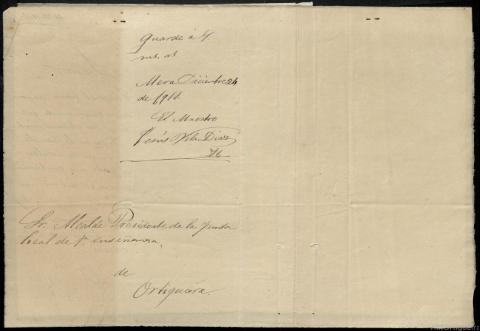 Guarde á V
ms. as
Mera Diciembre 24
de 191
El Maestro
Jesús Vila Diaz
Sr. Alcalde Presidente de la Junta
local de 1ª enseñanza.
de
Ortigueira